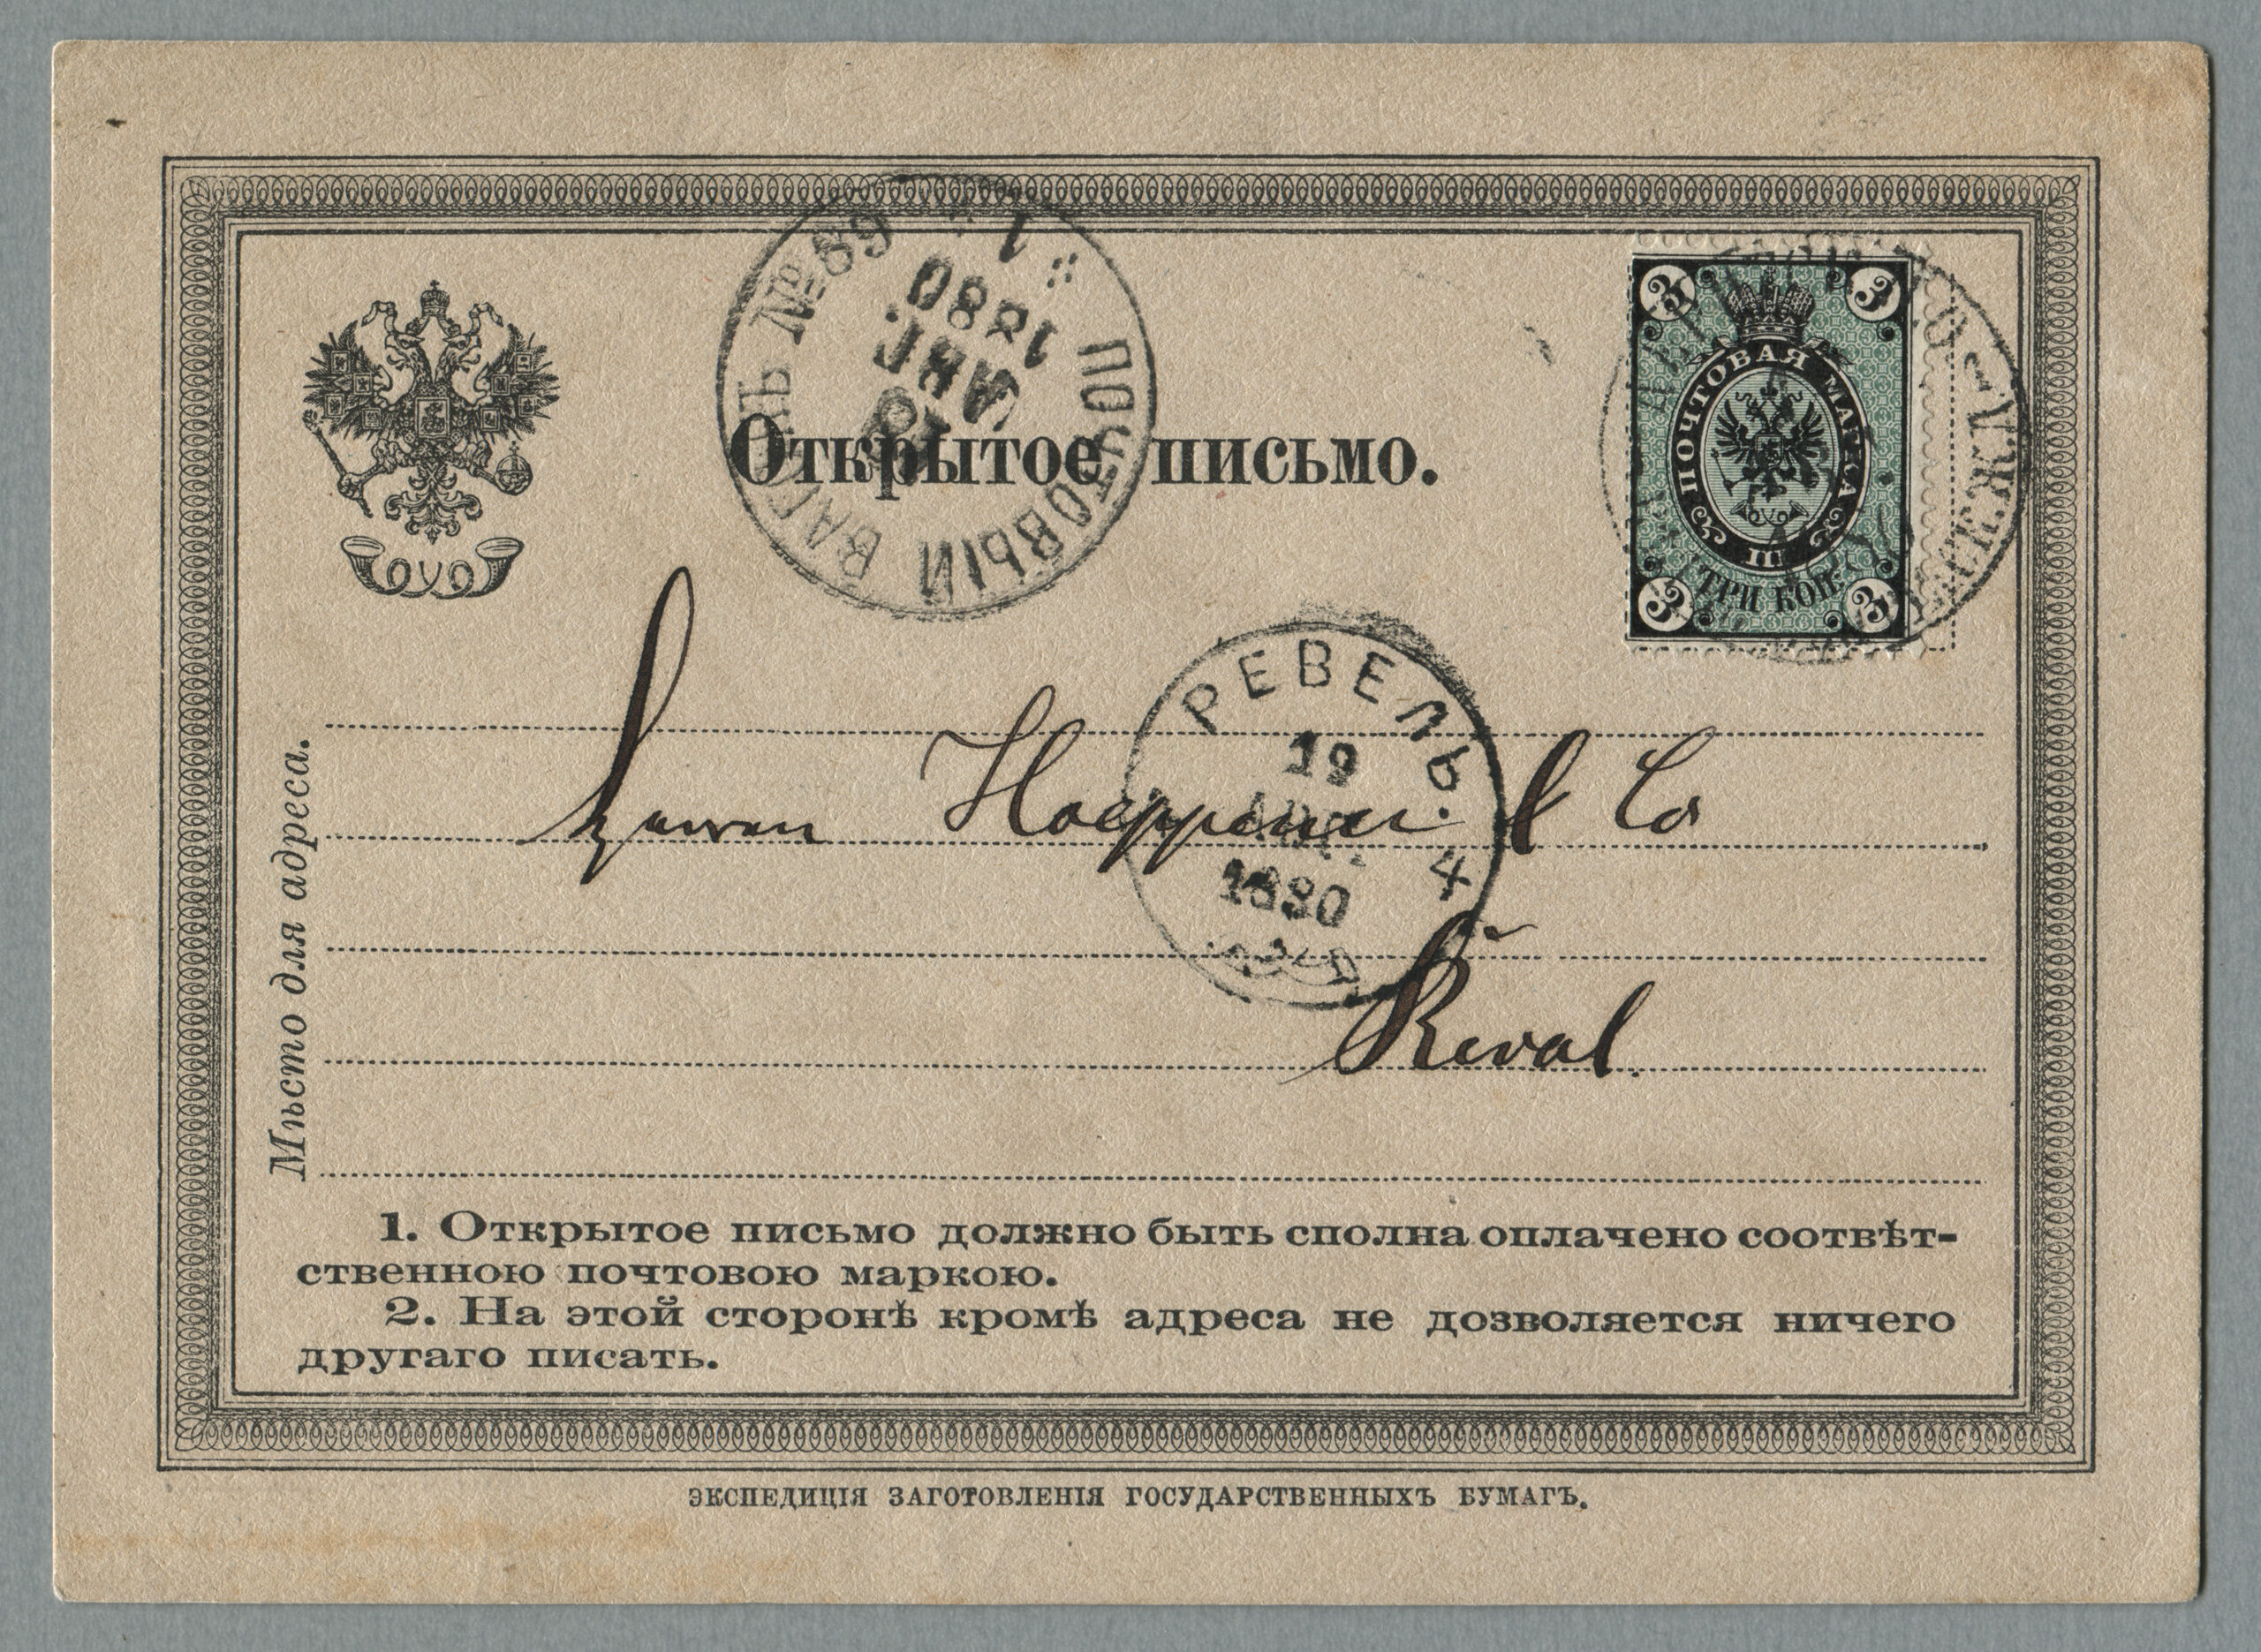 ПОЧТОВЫЙ ВАГОНЪ № 89
1
1880
АВГ.
18
3 3
ПОЧТОВАЯ МАРКА
ТРИ КОП.
3 3
Открытое письмо.
РЕВЕЛЬ.
19
1880
4
Мѣсто для адреса.
Hoeppener & Co
Reval.
1. Открытое письмо должно быть сполна оплачено соотвѣт-
ственною почтовою маркою.
2. На этой сторонѣ кромѣ адреса не дозволяется ничего
другаго писать.
ЭКСПЕДИЦІЯ ЗАГОТОВЛЕНІЯ ГОСУДАРСТВЕННЫХЪ БУМАГЪ.